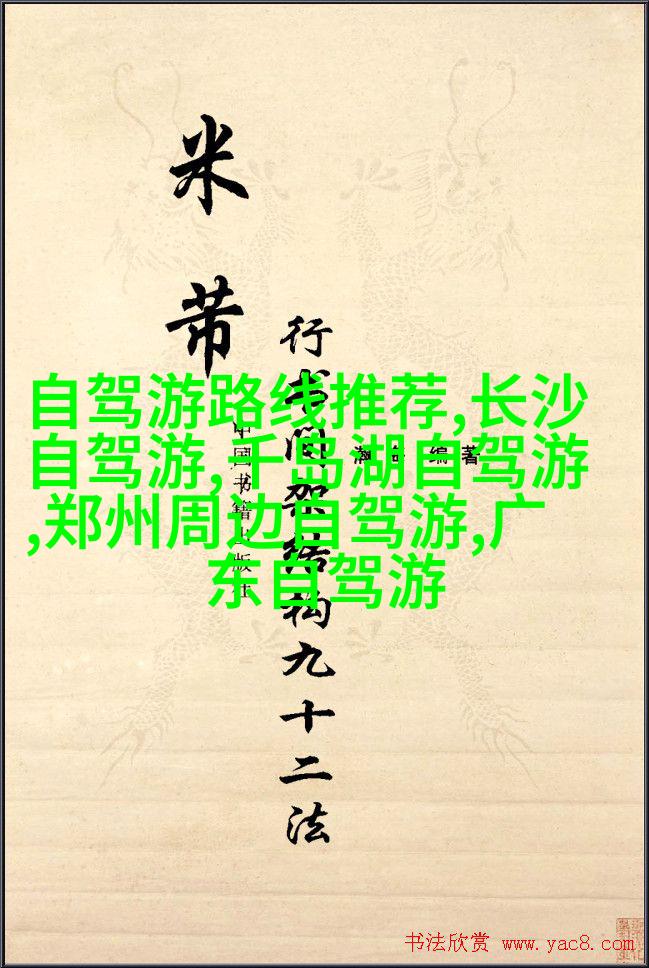 米芾
行书间架结构九十二法
编著
中国书籍出版社
自驾游路线推荐,长沙
自驾游,千岛湖自驾游
,郑州周边自驾游,广
东自驾游
书法欣赏 www.yac8.com